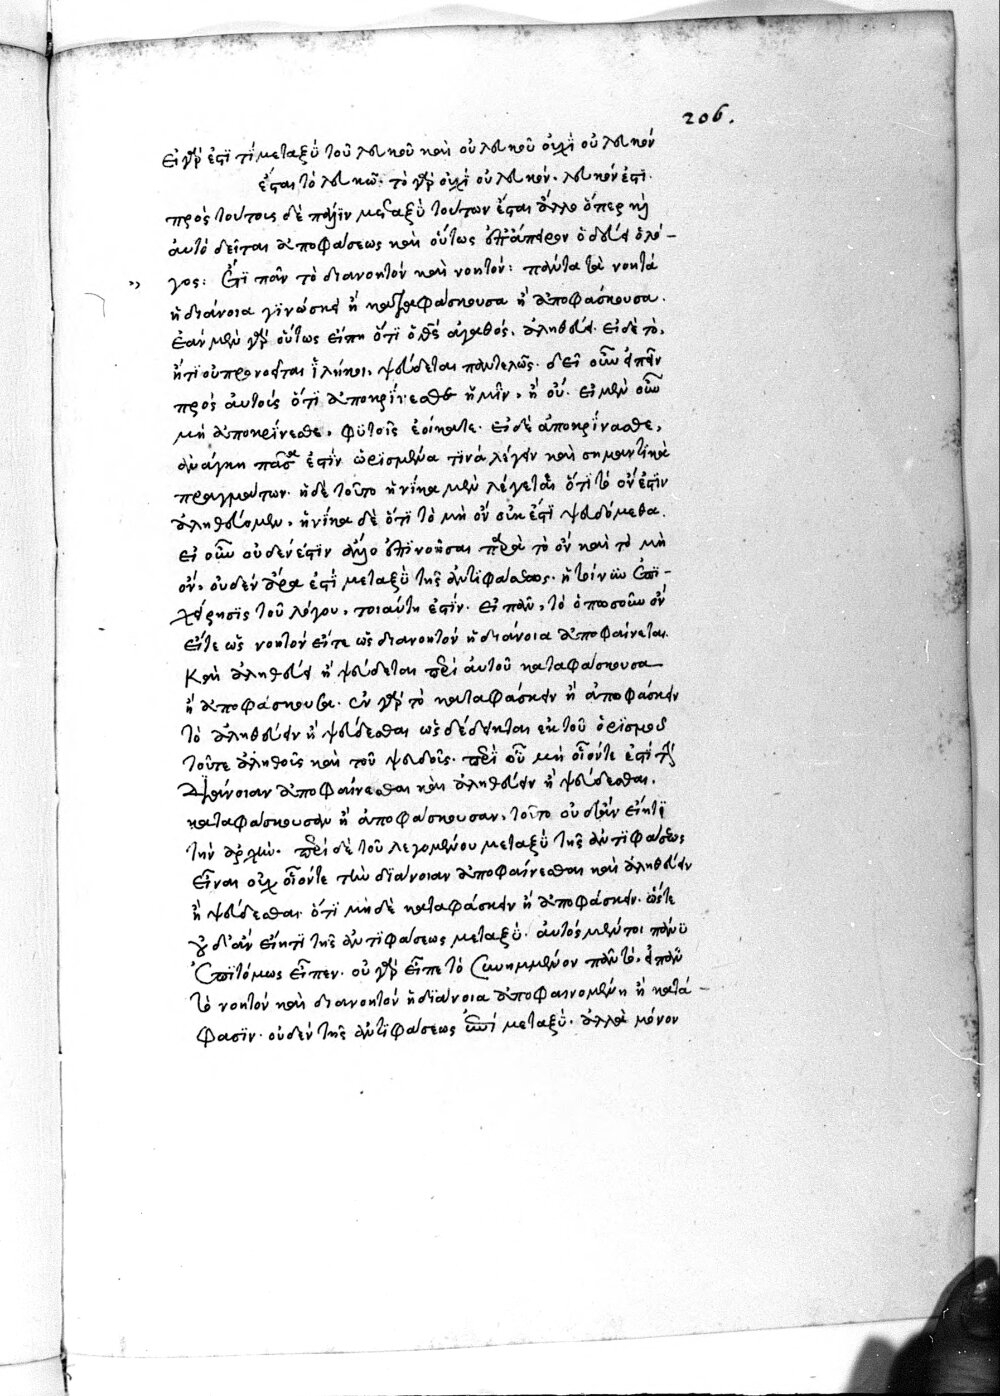 206.
εἰ γάρ ἐστι τὶ μεταξὺ τοῦ λευκοῦ καὶ οὐ λευκοῦ οὐχὶ οὐ λευκόν
ἔσται τὸ λευκόν. τὸ γὰρ οὐχὶ οὐ λευκόν, λευκόν ἐστι.
πρὸς τούτοις δὲ πάλιν μεταξὺ τούτων ἔσται ἄλλο ὅπερ καὶ
αὐτὸ δεῖται ἀποφάσεως καὶ οὕτως ἐπ' ἄπειρον ὁδεύει ὁ λό-
γος: Ἔτι πᾶν τὸ διανοητὸν καὶ νοητόν: πάντα τὰ νοητὰ
ἡ διάνοια γινώσκει ἢ καταφάσκουσα ἢ ἀποφάσκουσα.
ἐὰν μὲν γὰρ οὕτως εἴπῃ ὅτι ὁ θεὸς ἀγαθός, ἀληθεύει. εἰ δὲ τὸ,
ὅτι οὐ προνοεῖται ψεύδεται παντελῶς. δεῖ οὖν εἰπεῖν
πρὸς αὐτοὺς ὅτι ἀποκρίνεσθε ἡμῖν, ἢ οὔ. εἰ μὲν οὖν
μὴ ἀποκρίνεσθε, φυτοῖς ἐοίκατε. εἰ δὲ ἀποκρίνασθε,
ἀνάγκη πᾶσα ἐστὶν ὡρισμένα τινὰ λέγειν καὶ σημαντικὰ
πραγμάτων. ἡ δὲ τοῦτο ἡνίκα μὲν λέγεται ὅτι τὸ ὄν ἐστιν
ἀληθεύομεν, ἡνίκα δὲ ὅτι τὸ μὴ ὂν οὐκ ἔστι ψευδόμεθα.
εἰ οὖν οὐδέν ἐστιν ἄλλο ἐπινοῆσαι παρὰ τὸ ὂν καὶ τὸ μὴ
ὄν, οὐδὲν ἄρα ἐστὶ μεταξὺ τῆς ἀντιφάσεως. ἡ τοίνυν ἐπι-
χείρησις τοῦ λόγου, τοιαύτη ἐστίν. εἰ πᾶν, τὸ ὁπωσοῦν ὂν
εἴτε ὡς νοητὸν εἴτε ὡς διανοητὸν ἡ διάνοια ἀποφαίνεται.
καὶ ἀληθεύει ἢ ψεύδεται περὶ αὐτοῦ καταφάσκουσα
ἢ ἀποφάσκουσα. ἐν γὰρ τὸ καταφάσκειν ἢ ἀποφάσκειν
τὸ ἀληθεύειν ἢ ψεύδεσθαι ὡς δέδεικται ἐκ τοῦ ὁρισμοῦ
τοῦτε ἀληθοῦς καὶ τοῦ ψευδοῦς. περὶ οὗ μὴ οἷόντε ἐστὶ τὴν
διάνοιαν ἀποφαίνεσθαι καὶ ἀληθεύειν ἢ ψεύδεσθαι,
καταφάσκουσαν ἢ ἀποφάσκουσαν, τοῦτο οὐδ' ἂν εἴη τι
τὴν ἀρχήν. περὶ δὲ τοῦ λεγομένου μεταξὺ τῆς ἀντιφάσεως
εἶναι οὐχ οἷόντε τὴν διάνοιαν ἀποφαίνεσθαι καὶ ἀληθεύειν
ἢ ψεύδεσθαι. ὅτι μηδὲ καταφάσκειν ἢ ἀποφάσκειν. ὥστε
οὐδ' ἂν εἴη τι τῆς ἀντιφάσεως μεταξύ. αὐτὸς μέντοι πάνυ
ἐπιτόμως εἶπεν. οὐ γὰρ εἶπε τὸ συνημμένον πᾶν τὸ, εἰ πᾶν
τὸ νοητὸν καὶ διανοητὸν ἡ διάνοια ἀποφαινομένη ἢ κατά-
φασιν. οὐδὲν τῆς ἀντιφάσεως ἐστὶ μεταξύ. ἀλλὰ μόνον